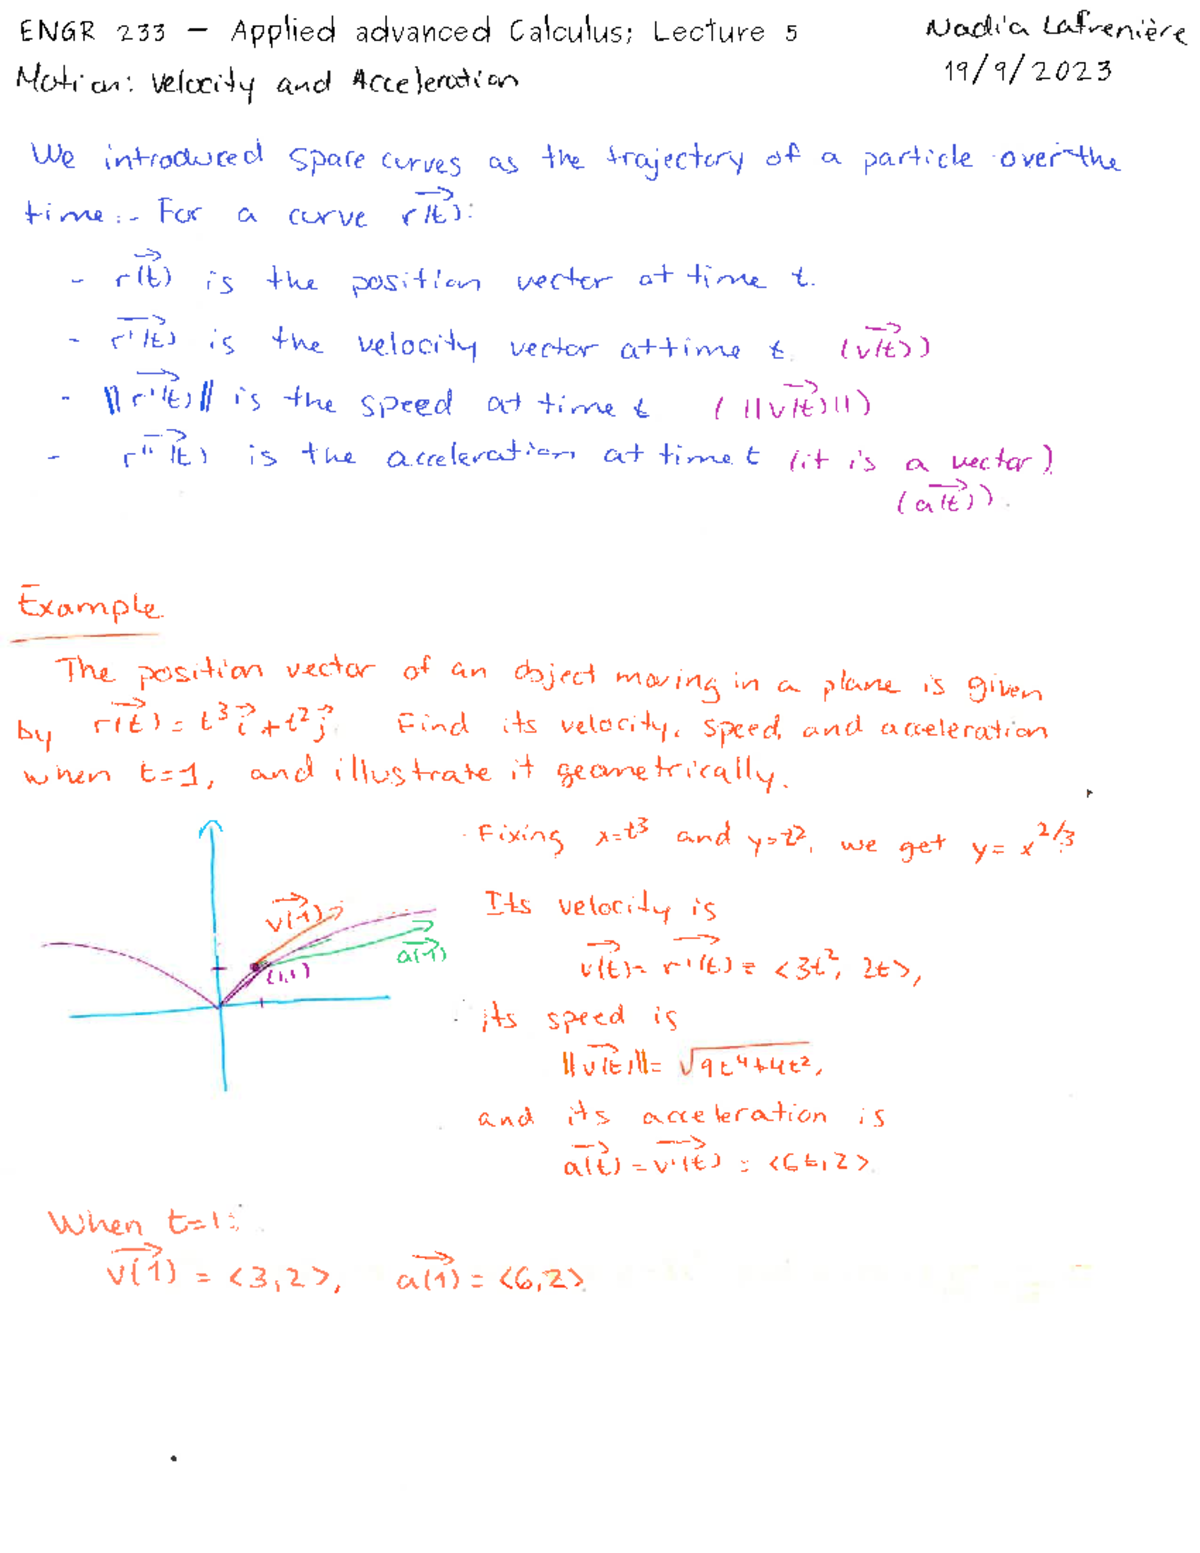 ENGR 233 – Applied advanced Calculus; Lecture 5
Nadia Lafrenière
Motion: Velocity and Acceleration
19/9/2023
We introduced space curves as the trajectory of a particle over the
time. For a curve r(t):
- r(t) is the position vector at time t.
- r'(t) is the velocity vector at time t. (v(t))
- ||r'(t)|| is the speed at time t (||v(t)||)
- r''(t) is the acceleration at time t (it is a vector)
(a(t)).
Example
The position vector of an object moving in a plane is given
by r(t) = t³i + t²j. Find its velocity, speed, and acceleration
when t=1, and illustrate it geometrically.
Fixing x=t³ and y=t², we get y= x^2/3.
Its velocity is
v(t) = r'(t) = <3t², 2t>,
its speed is
||v(t)|| = √9t⁴+4t²,
and its acceleration is
a(t) = v'(t) = <6t, 2>.
v(1)
a(1)
(1,1)
When t=1:
v(1) = <3,2>, a(1) = <6,2>